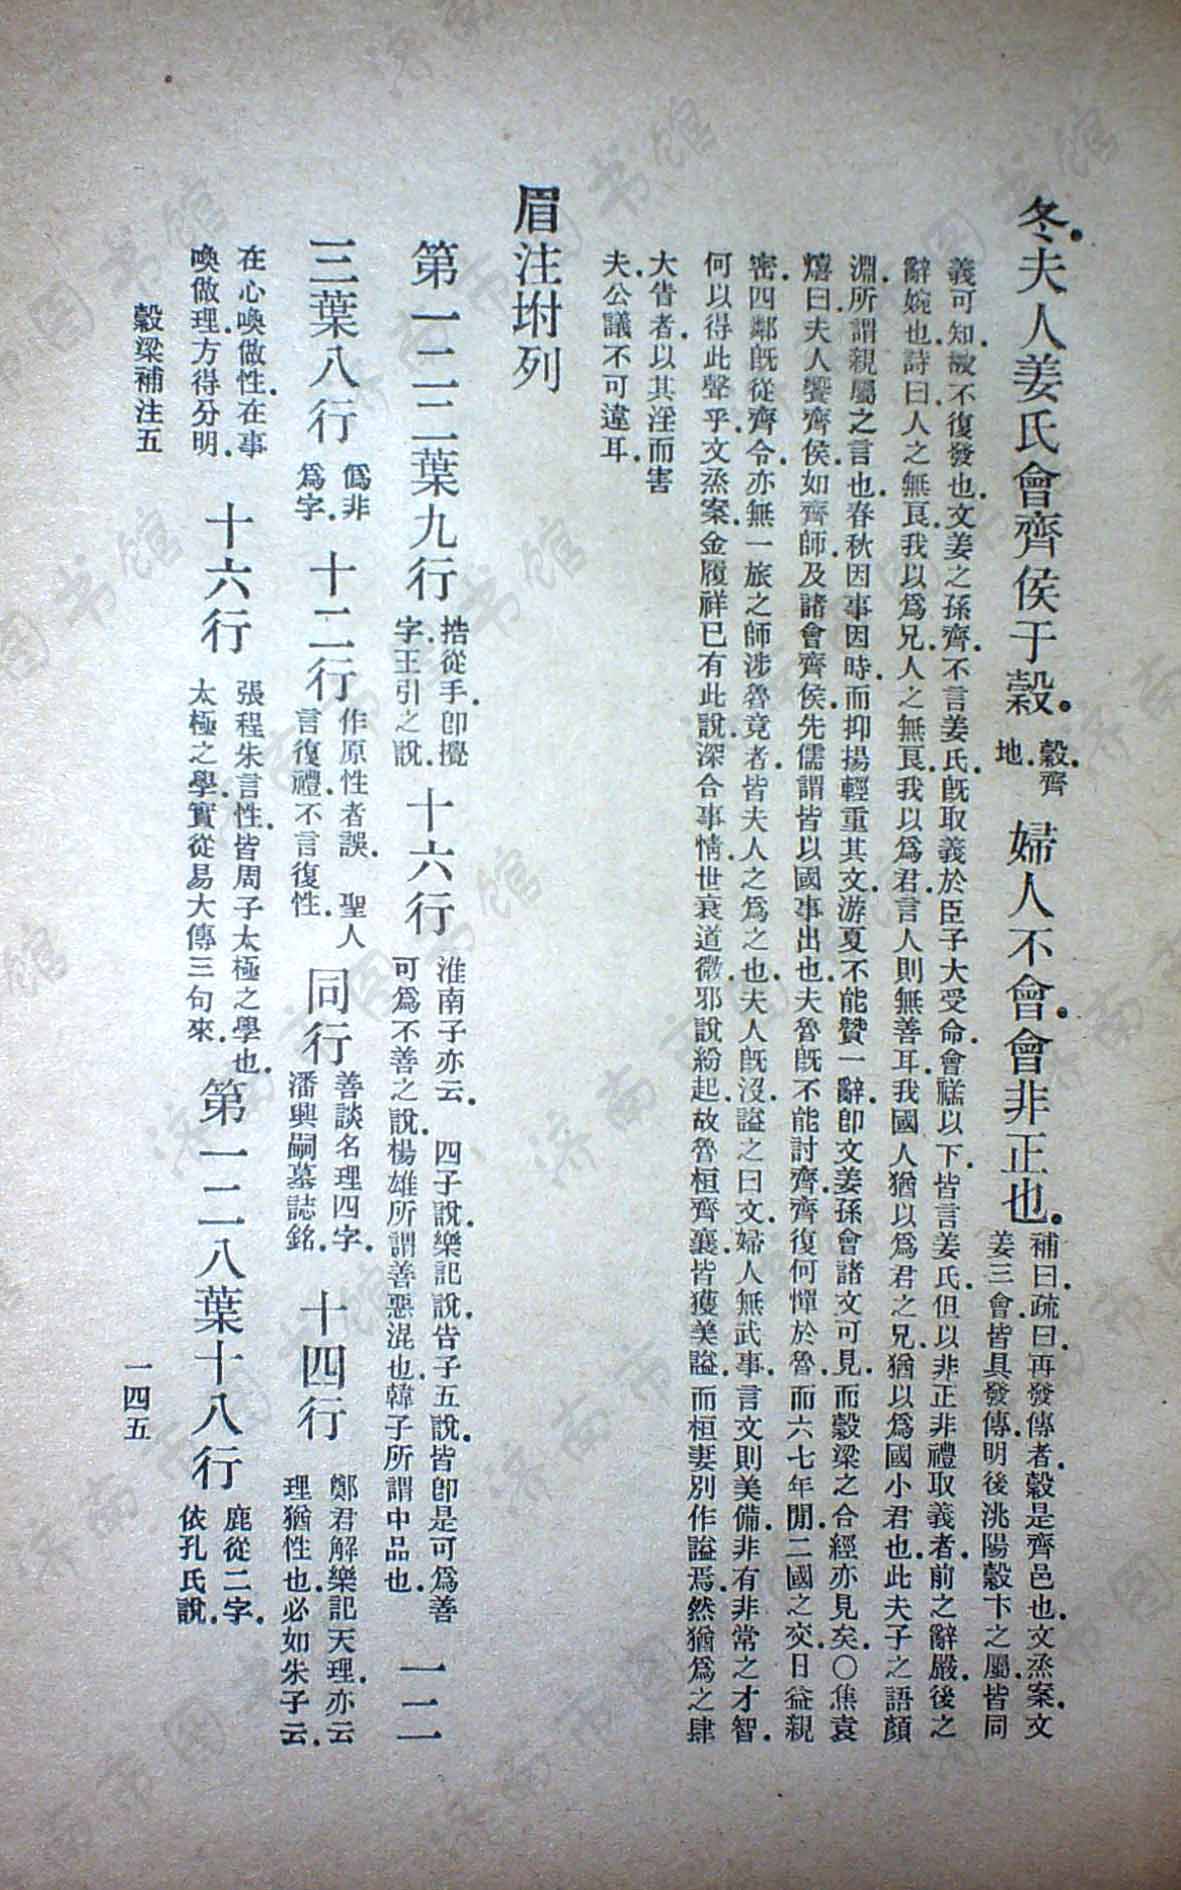 冬.夫人姜氏會齊侯于穀.
穀.齊
地.
婦人不會.會非正也.
補曰.疏曰.再發傳者.穀是齊邑也.文烝案.文
姜三會.皆具發傳.明後洮陽穀卞之屬.皆同
義可知.故不復發也.文姜之孫齊.不言姜氏.旣取義於臣子大受命.會禚以下.皆言姜氏.但以非正非禮取義者.前之辭嚴.後之
辭婉也.詩曰.人之無良.我以爲兄.人之無良.我以爲君.言人則無善耳.我國人猶以爲君之兄.猶以爲國小君也.此夫子之語顏
淵.所謂親屬之言也.春秋因事因時.而抑揚輕重其文.游夏不能贊一辭.卽文姜孫會諸文可見.而穀梁之合經亦見矣.○焦袁
熹曰.夫人饗齊侯.如齊師.及諸會齊侯.先儒謂皆以國事出也.夫魯旣不能討齊.齊復何憚於魯.而六七年閒.二國之交.日益親
密.四鄰旣從齊令.亦無一旅之師涉魯竟者.皆夫人之爲之也.夫人旣沒.謚之曰文.婦人無武事.言文則美備.非有非常之才智.
何以得此聲乎.文烝案.金履祥已有此說.深合事情.世衰道微.邪說紛起.故魯桓齊襄.皆獲美謚.而桓妻別作謚焉.然猶爲之肆
大眚者.以其淫而害
夫.公議不可違耳.
眉注坿列
第一二二葉九行
捁從手.卽攪
字.王引之說.
十六行
淮南子亦云.四子說.樂記說.告子五說.皆卽是可爲善
可爲不善之說.楊雄所謂善惡混也.韓子所謂中品也.
一二
三葉八行
僞非
爲字.
十二行
作原性者誤.聖人
言復禮.不言復性.
同行
善談名理四字.
潘興嗣墓誌銘.
十四行
鄭君解樂記天理.亦云
理猶性也.必如朱子云.
在心喚做性.在事
喚做理.方得分明.
十六行
張程朱言性.皆周子太極之學也.
太極之學.實從易大傳三句來.
第一二八葉十八行
鹿從二字.
依孔氏說.
穀梁補注五
一四五
济南市图书馆